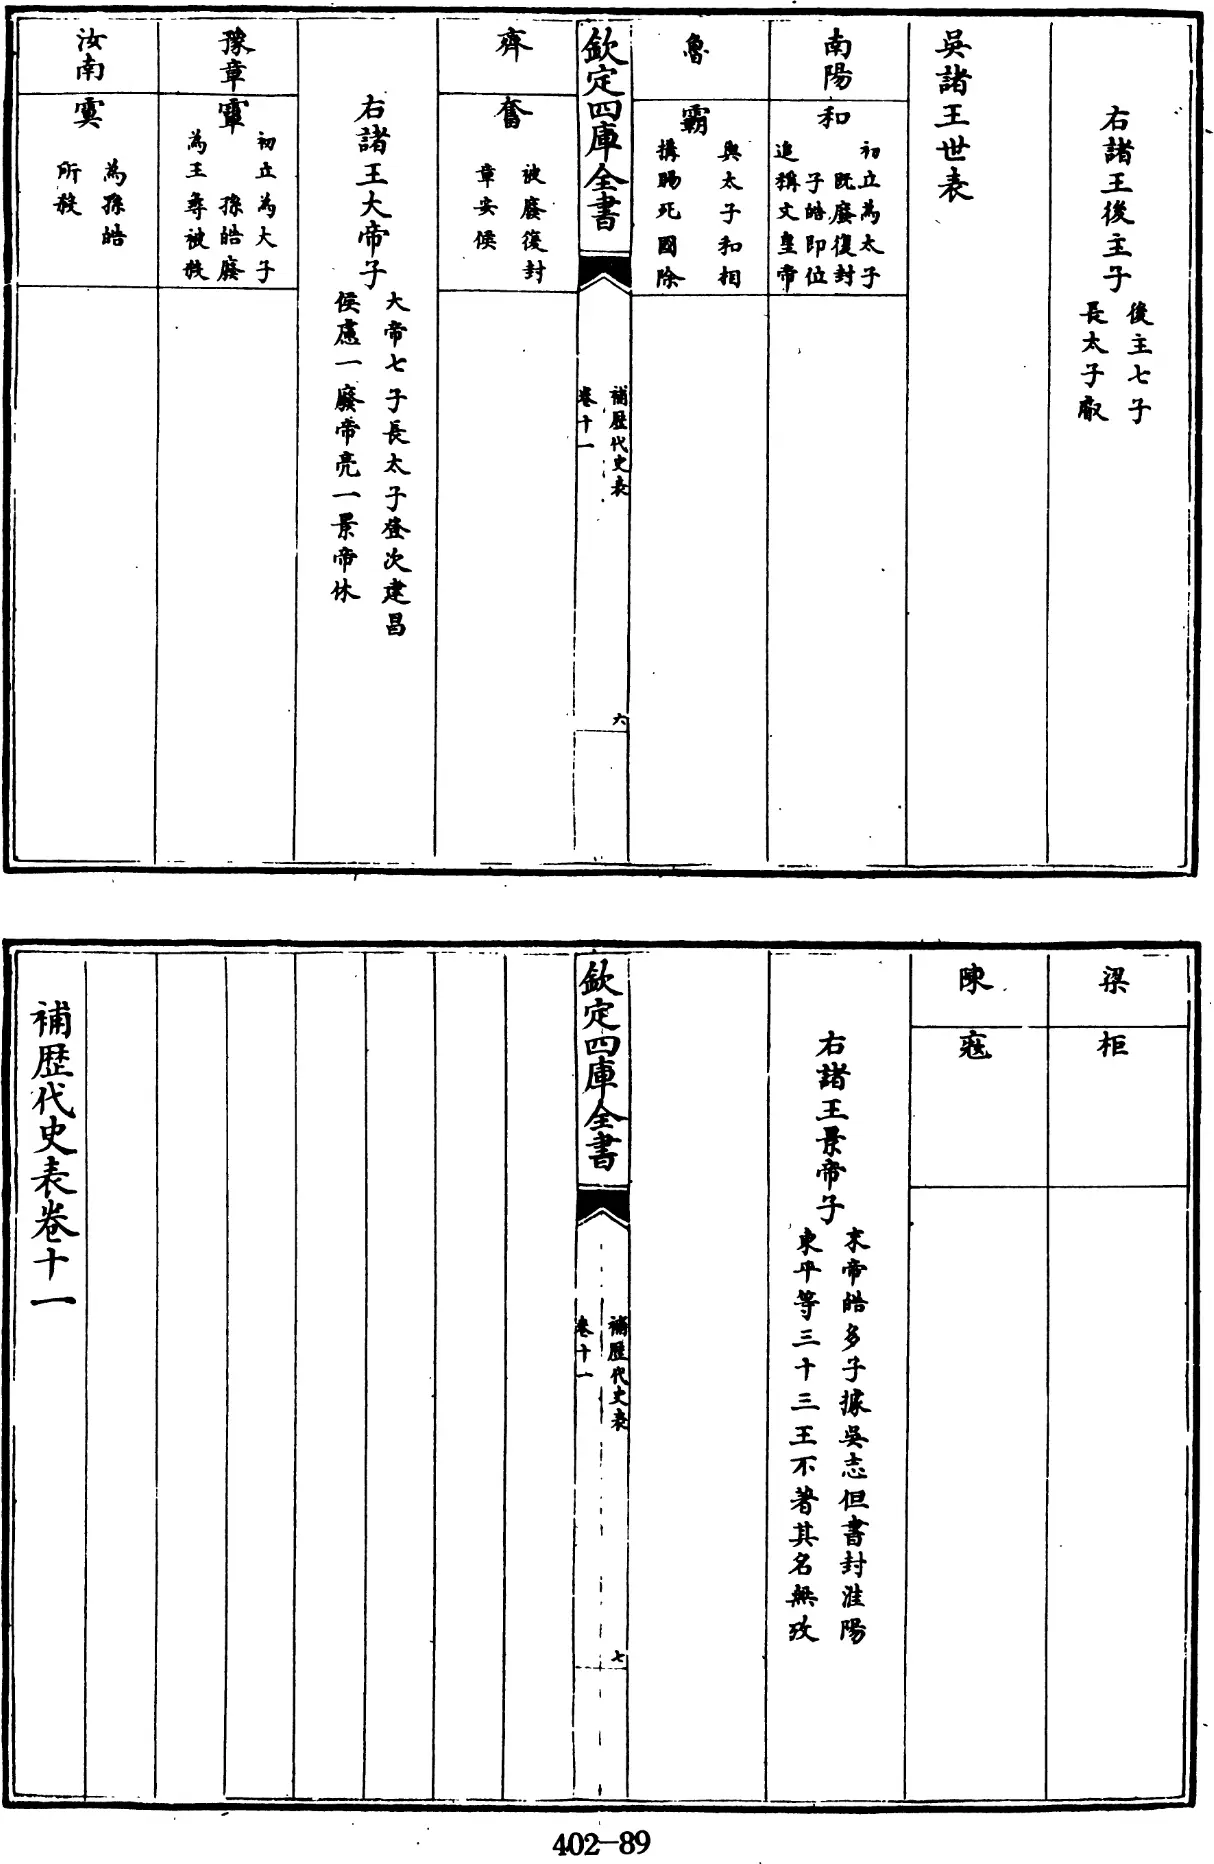 右諸王後主子
後主七子
長太子叡
吳諸王世表
南陽
和
初立為太子
既廢復封
子皓即位
追稱文皇帝
魯
霸
與太子和相
搆賜死國除
欽定四庫全書
補歷代史表
卷十一
六
齊
奮
被廢復封
章安侯
右諸王大帝子
大帝七子長太子登次建昌
侯慮一廢帝亮一景帝休
豫章
𩅦
初立為太子
孫皓廢
為王尋被殺
汝南
𩃙
為孫皓
所殺
梁
柜
陳
寇
右諸王景帝子
末帝皓多子據吳志但書封淮陽
東平等三十三王不著其名無攷
欽定四庫全書
補歷代史表
卷十一
七
補歷代史表卷十一
402-89